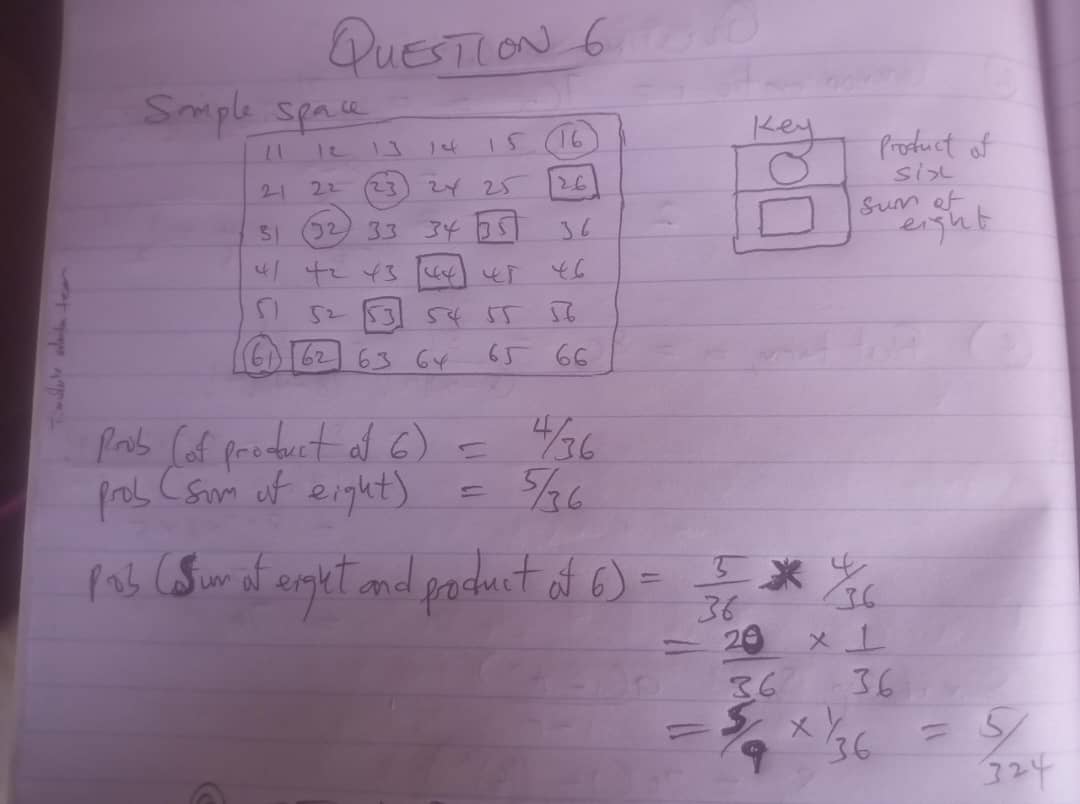 QUESTION 6
Sample space
11 12 13 14 15 16
21 22 23 24 25 26
31 32 33 34 35 36
41 42 43 44 45 46
51 52 53 54 55 56
61 62 63 64 65 66
Key
Product of
six
sum of
eight
Prob (of product of 6) = 4/36
prob (sum of eight) = 5/36
prob (Sum of eight and product of 6) = 5/36 * 4/36
= 20/36 × 1/36
= 5/9 × 1/36 = 5/324